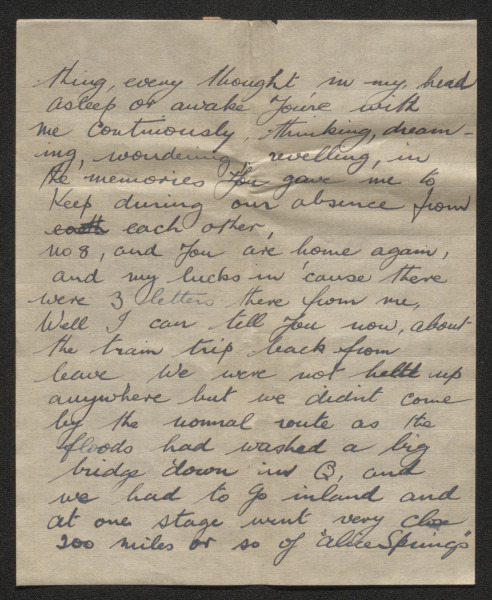 thing, every thought in my head
asleep or awake You're with
me continously, thinking, dream-
ing, wondering, revelling, in
the memories You gave me to
keep during our absence from
each other,
no 8, and You are home again,
and my lucks in 'cause there
were 3 letters there from me,
Well I can tell You now, about
the train trip back from
leave We were not held up
anywhere but we didn't come
by the normal route as the
floods had washed a big
bridge down in Q, and
we had to go inland and
at one stage went very close
200 miles or so of "Alice Springs"